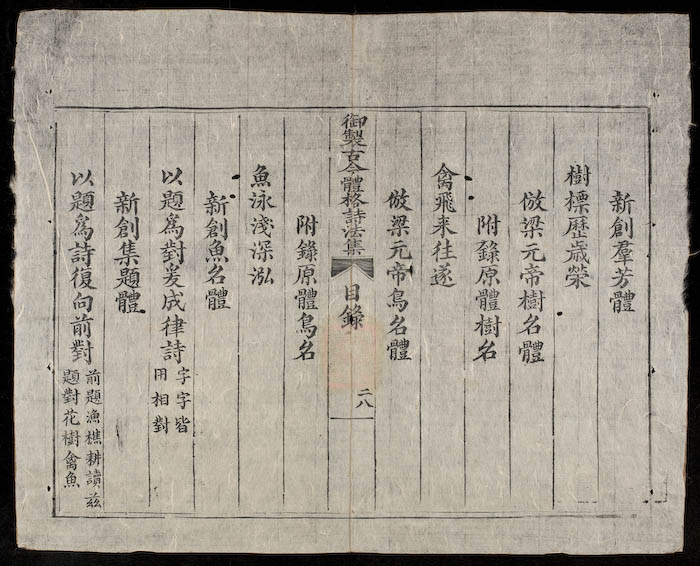 新創羣芳體
樹標歷歲榮
倣梁元帝樹名體
附錄原體樹名
禽飛来往遂
倣梁元帝鳥名體
御製古今體格詩法集
目錄
二八
附錄原體鳥名
魚泳淺深泓
新創魚名體
以題為對爰成律詩
字字皆
用相對
新創集題體
以題為詩復向前對
前題漁樵耕讀茲
題對花樹禽魚